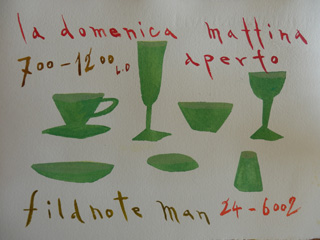 la domenica mattina
700-1200 L.O aperto
fildnote man 24-6002